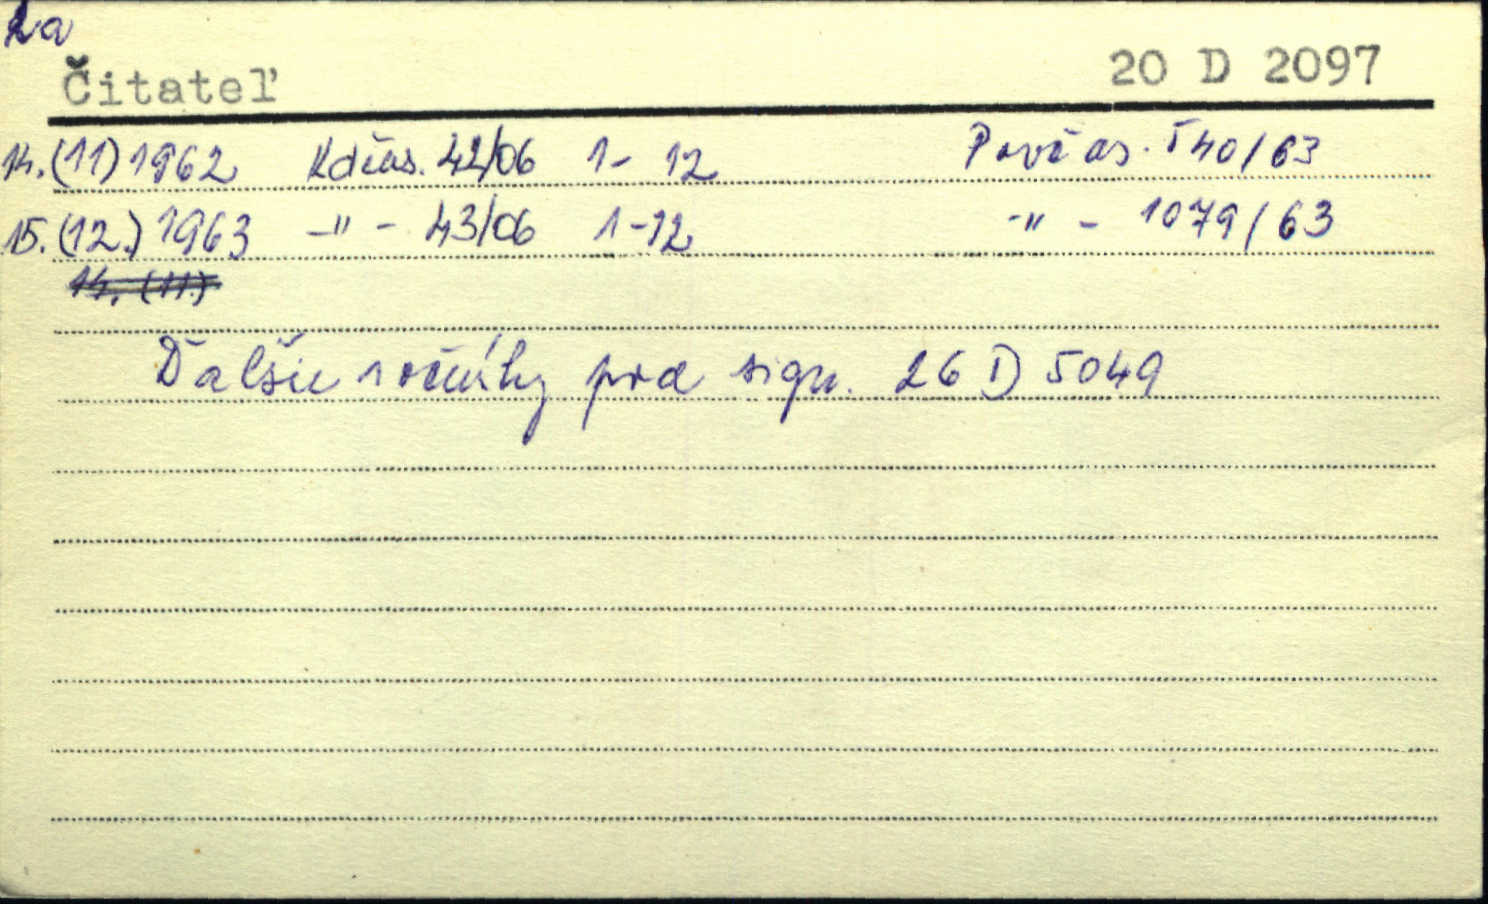 2a
Čitateľ 20 D 2097
14. (11) 1962 Kdčas. 42/06 1- 12 Povč as. 540/63
15. (12.) 1963 -"- 43/06 1-12 -"- 1079/63
14. (11)
Ďalšie ročníky pod sign. 26 D 5049